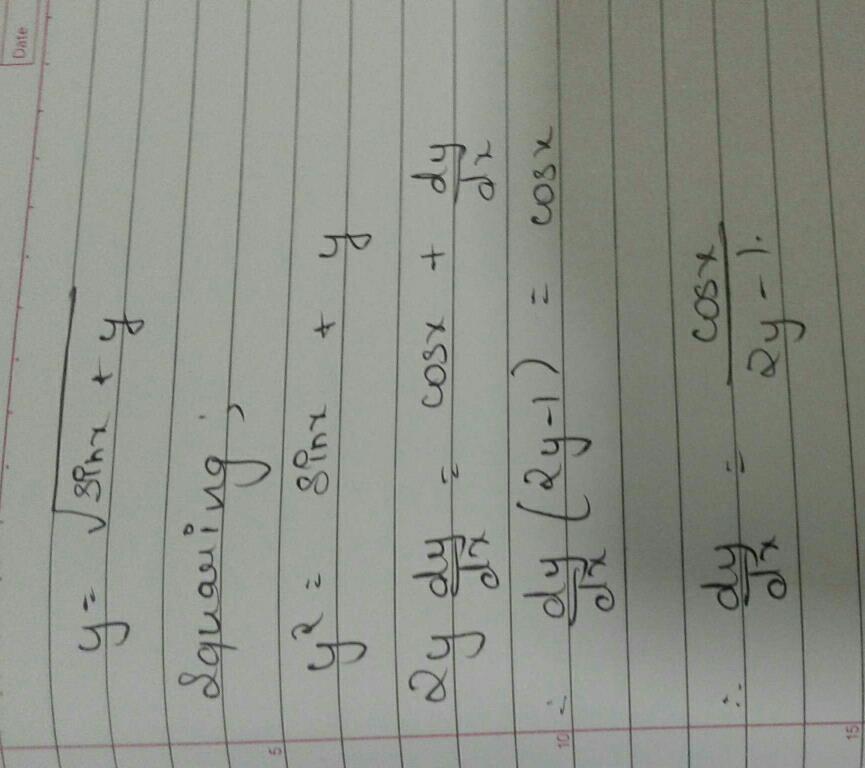 Date
y = √sinx + y
Squaring,
5
y² = sinx + y
2y dy/dx = cosx + dy/dx
10
∴ dy/dx (2y-1) = cosx
∴ dy/dx = cosx/2y - 1.
15